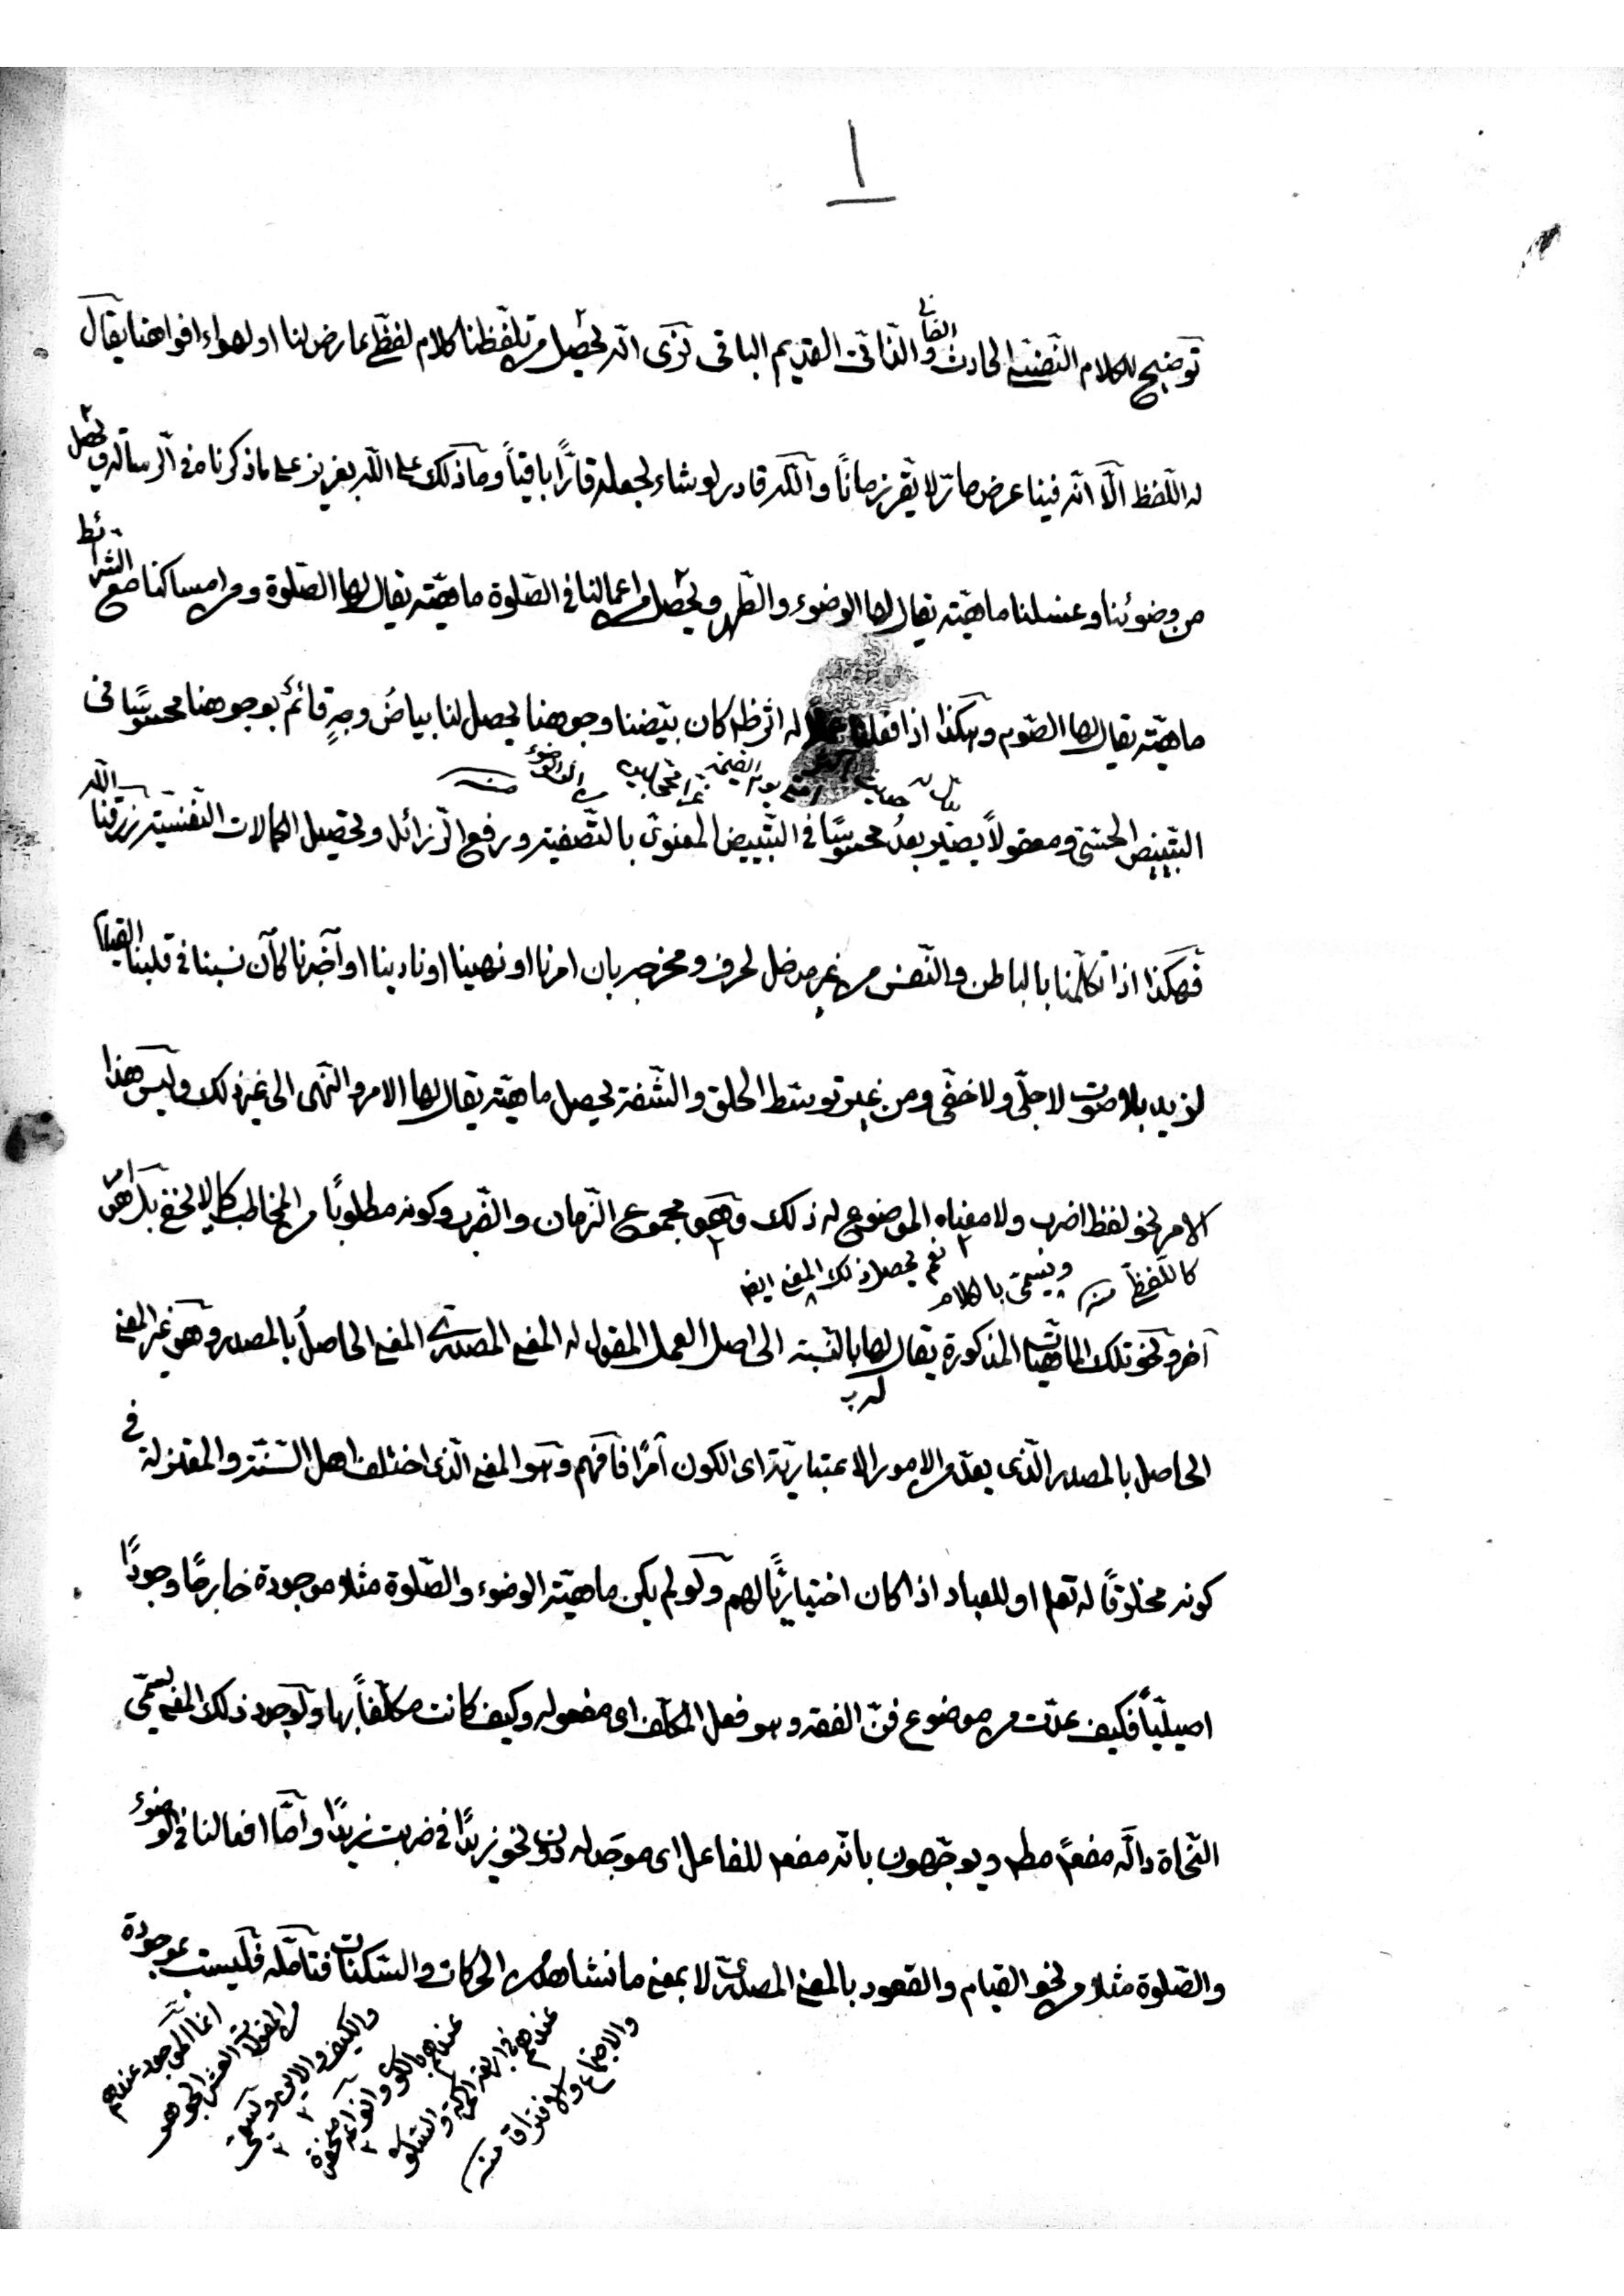 ١
توضيح للكلام النفسي الحادث الفاني والذاتي القديم الباقي نرى انه يحصل من تلفظنا كلام لفظي عارض لنا او لهواء افواهنا يقال
له اللفظ الا انه فينا عرض لا يقر زمانا والله قادر لو شاء لجعله قارا باقيا وما ذلك على الله بعزيز على ما ذكرنا في الرسالة ويحصل
من وضوئنا وغسلنا ماهية يقال لها الوضوء والطهر ويحصل من اعمالنا في الصلوة ماهية يقال لها الصلوة ومن امساكنا مع الشرائط
ماهية يقال لها الصوم وهكذا اذا فعلنا له اثر ظ كان بيضنا وجوهنا يحصل لنا بياض وجه قائم بوجوهنا محسوسا في
التبييض الحسي ومعقولا يصير بعد محسوسا في التبييض المعنوي بالتصفية ورفع الرزائل وتحصيل الكمالات النفسية رزقنا الله
فهكذا اذا تكلمنا بالباطن والنفس من غير مدخل لحرف ومخرج بان امرنا او نهينا او نادينا او اخبرنا كان نسبنا في قلبنا القيام
لزيد بلا صوت لا جلي ولا خفي ومن غير توسط الحلق والشفة يحصل ماهية يقال لها الامر والنهي الى غير ذلك وليس هذا
الامر نحو لفظ اضرب ولا معناه الموضوع له ذلك وهو مجموع الزمان والضرب وكونه مطلوبا من المخاطب كما لا يخفى بل هو امر
كاللفظي منه ويسمى بالكلام نعم يحصل ذلك المعنى ايضا
آخر ونحو تلك الماهيات المذكورة يقال لها بالنسبة الى اصل العمل المقول له المعنى المصدري المعنى الحاصل بالمصدر وهو غير المعنى
الحاصل بالمصدر الذي يعد من الامور الاعتبارية اي الكون آمرا فافهم وهو المعنى الذي اختلف اهل السنة والمعتزلة في
كونه مخلوقا له تعالى او للعباد اذا كان اختياريا لهم ولو لم يكن ماهية الوضوء والصلوة مثلا موجودة خارجا وجودا
اصيليا فكيف عدت من موضوع فن الفقه وهو فعل المكلف اي مفعوله وكيف كانت مكلفا بها ولوجود ذلك المعنى يسمي
النحاة داله مفعم مطم ويوجهون بانه مفعم للفاعل اي موجد له دون نحو زيدا في ضربت زيدا واما افعالنا في الوضوء
والصلوة مثلا من نحو القيام والقعود بالمعنى المصدري لا بمعنى ما نشاهد من الحركات والسكنات فتأمله فليست بموجودة
انما الموجود عندهم
من المقولات العشر الجوهر
والكيف والاين ويسمى
عندهم بالكون وانواعه منحصرة
عندهم في اربعة الحركة والسكون
والاجتماع والافتراق منه